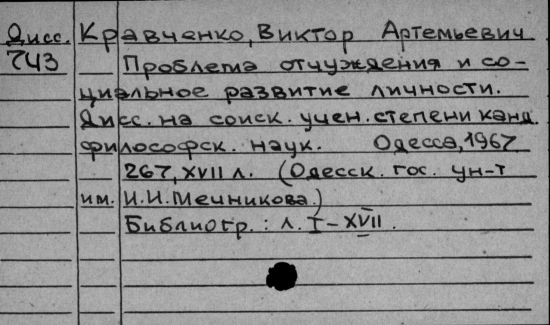 Дисс. Кравченко, Виктор Артемьевич
743 Проблема отчуждения и со-
циальное развитие личности.
Дисс. на соиск. учен. степени канд.
философск. наук. Одесса, 1967
267, XVII л. (Одесск. гос. ун-т
им. И.И. Мечникова.)
Библиогр.: л. I-XVII.